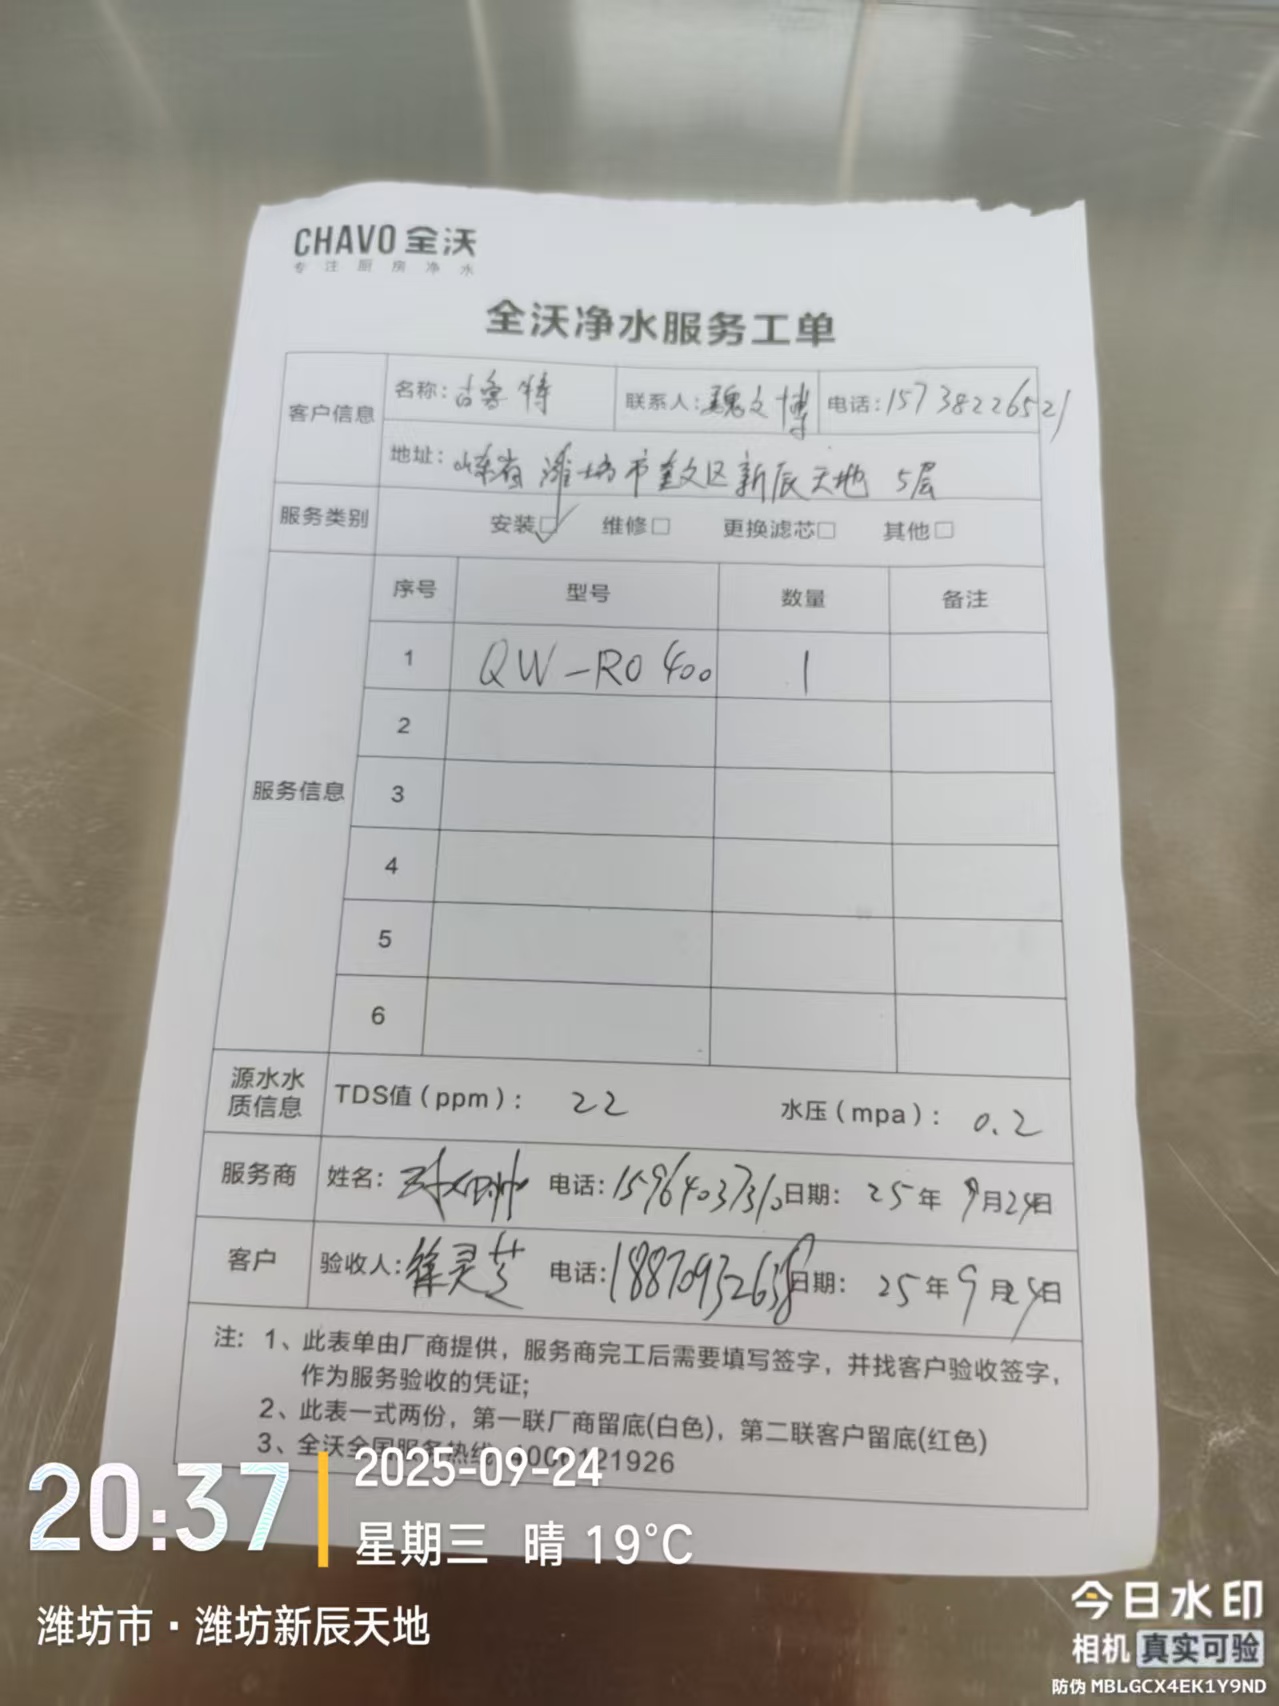 CHAVO 全沃
专注厨房净水
全沃净水服务工单
客户信息 名称: 古鲁特 联系人: 魏文博 电话: 15738226521
地址: 山东省潍坊市奎文区新辰天地 5层
服务类别 安装☑ 维修□ 更换滤芯□ 其他□
服务信息 序号 型号 数量 备注
1 QW-RO 400 1
2
3
4
5
6
源水水质信息 TDS值(ppm): 22 水压(mpa): 0.2
服务商 姓名: 电话: 15964037310 日期: 25年9月24日
客户 验收人: 徐灵芝 电话: 18870932638 日期: 25年9月24日
注: 1、此表单由厂商提供，服务商完工后需要填写签字，并找客户验收签字，
作为服务验收的凭证;
2、此表一式两份，第一联厂商留底(白色)，第二联客户留底(红色)
3、全沃全国服务热线 4006121926
20:37
2025-09-24
星期三 晴 19°C
潍坊市·潍坊新辰天地
今日水印
相机 真实可验
防伪 MBLGCX4EK1Y9ND